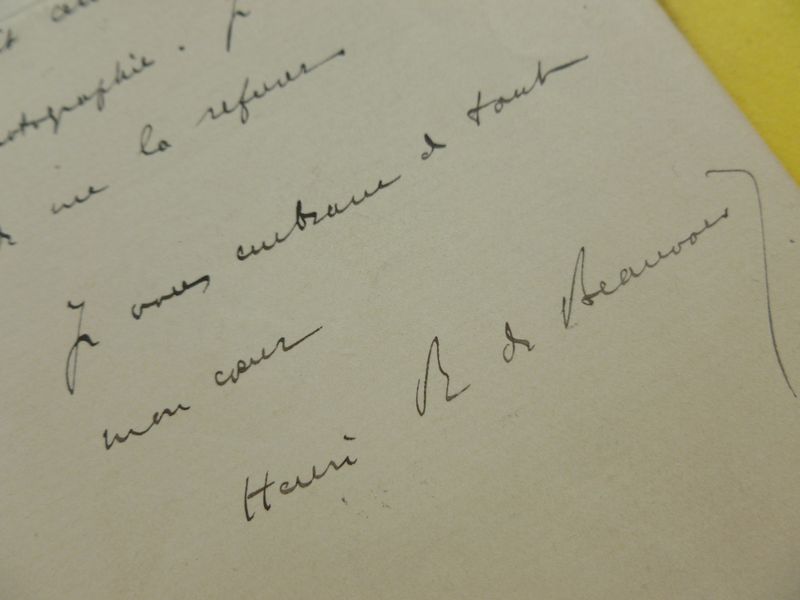 photographie. J
me la refuser
Je vous embrasse de tout
mon cœur
Henri B de Beauvoir